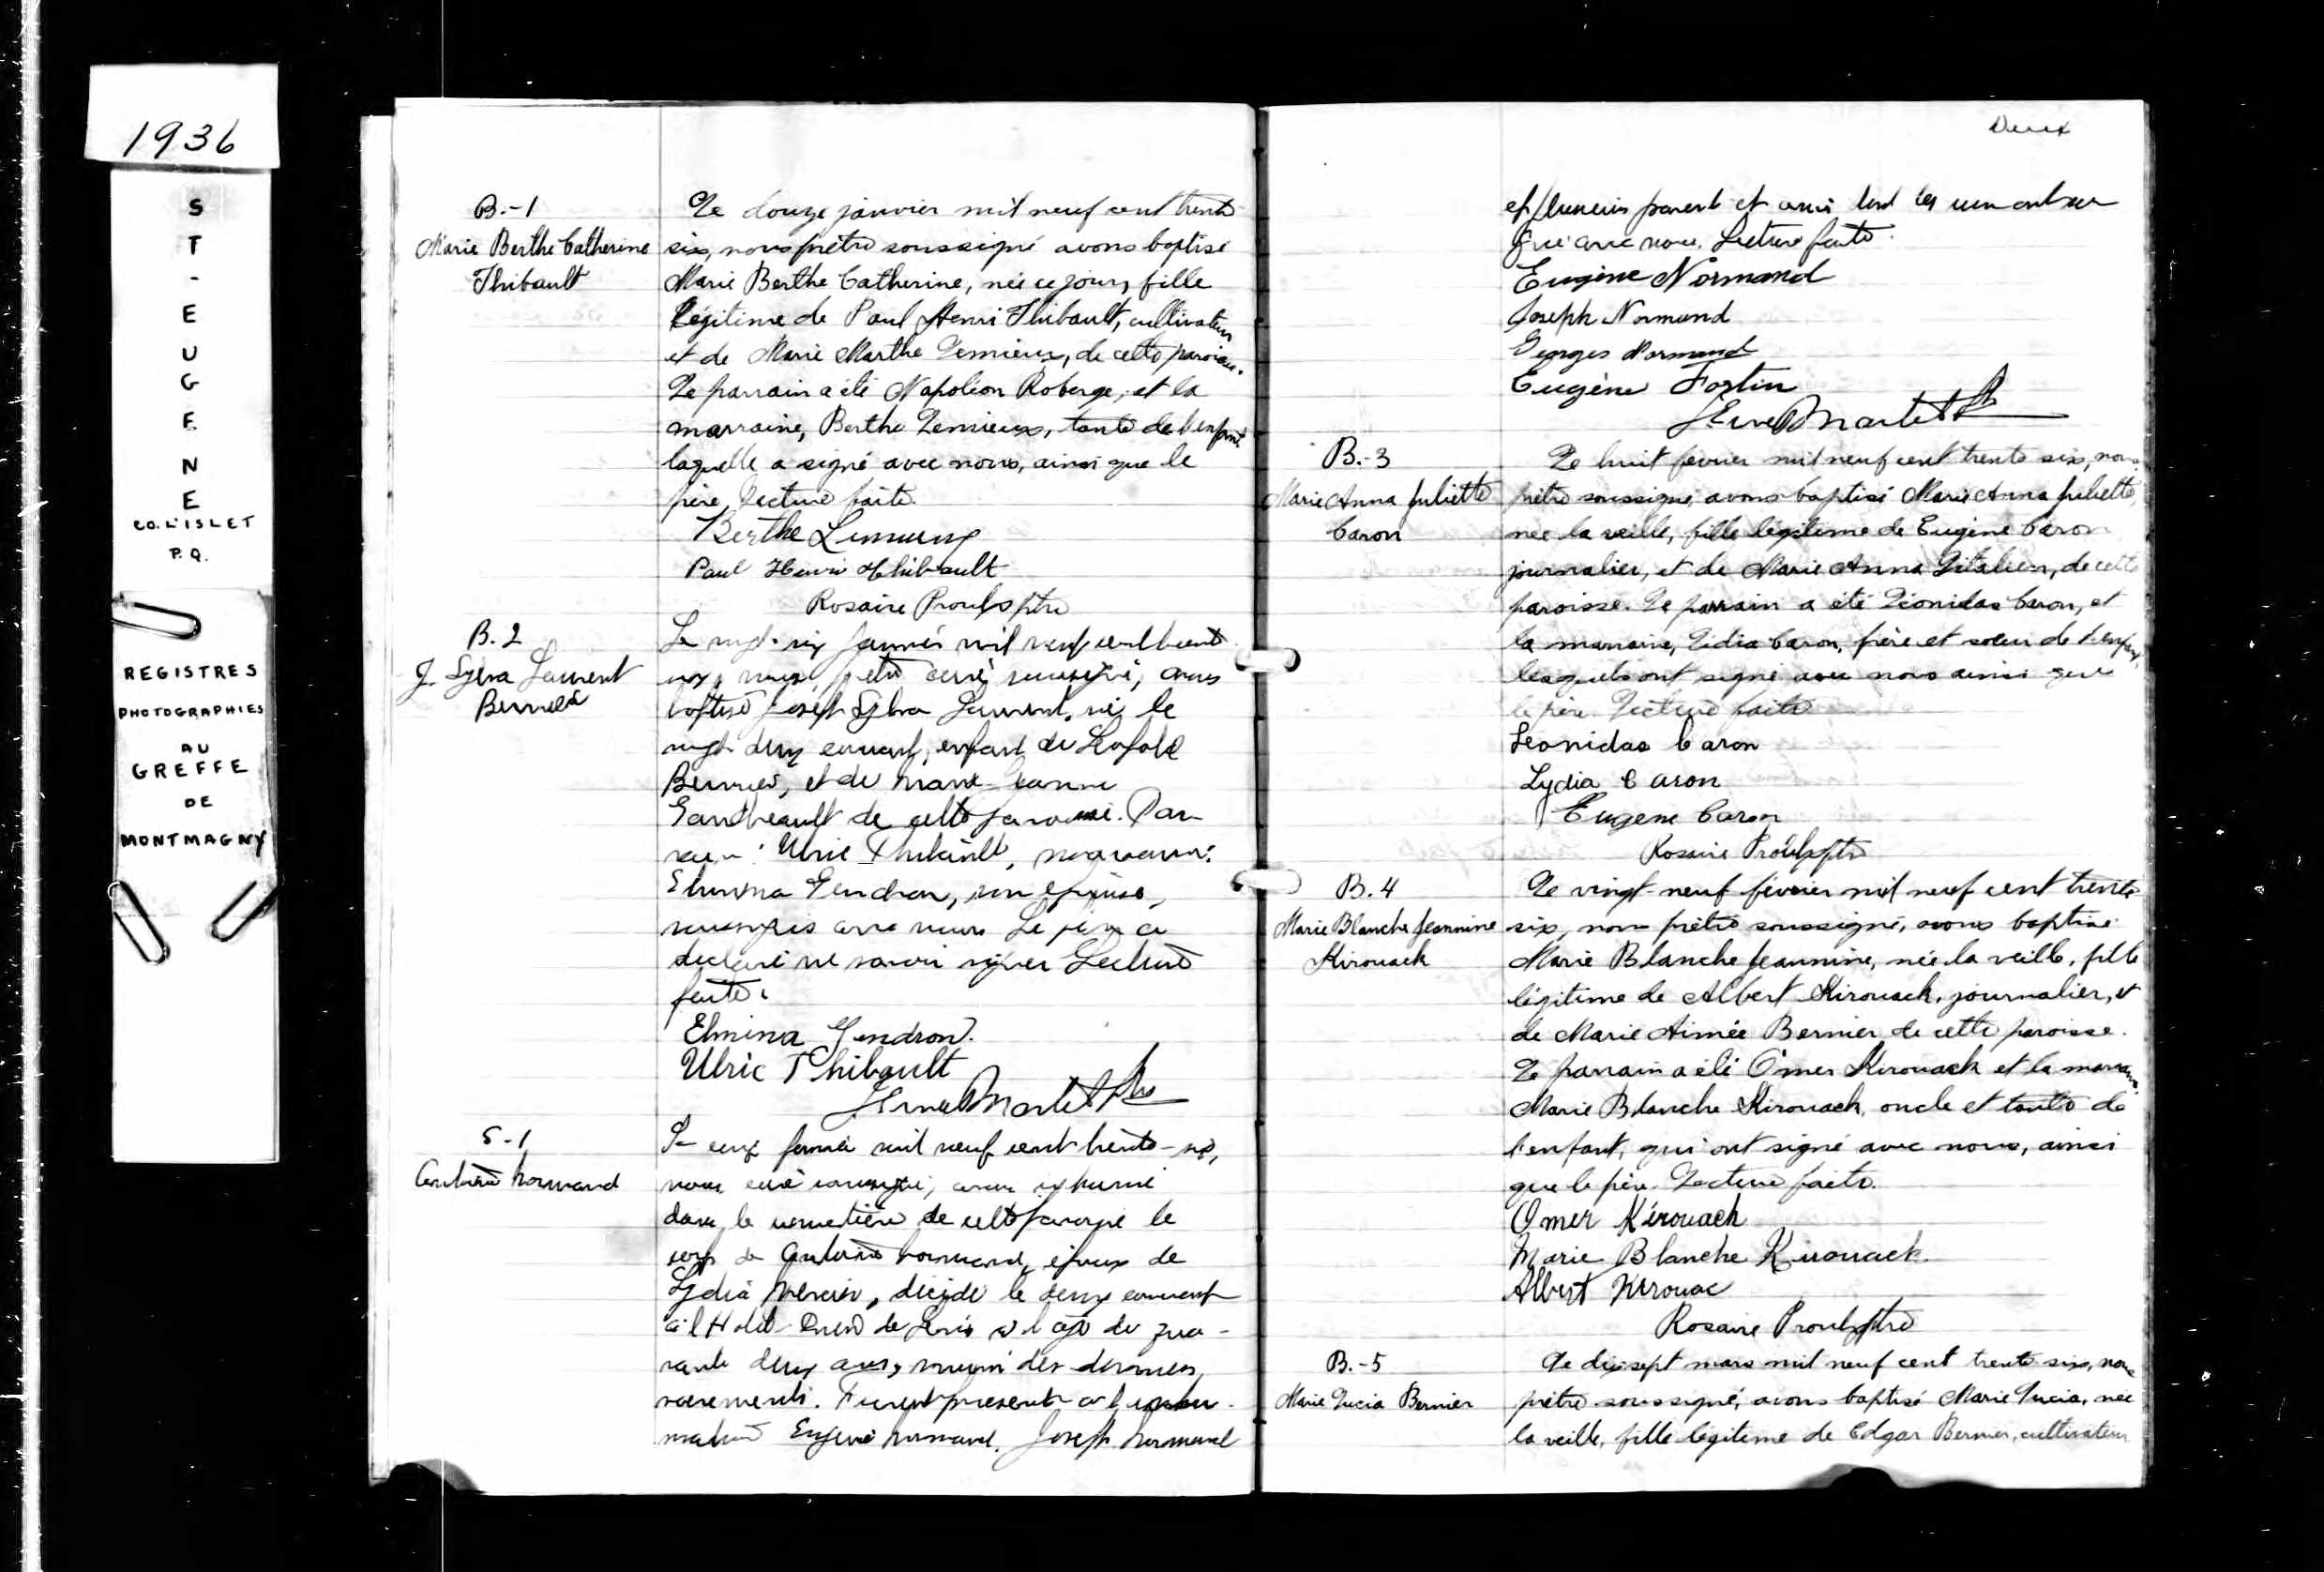 1936
ST-EUGENE
CO. L'ISLET
P.Q.
REGISTRES
PHOTOGRAPHIES
AU
GREFFE
DE
MONTMAGNY
B.-1
Marie Berthe Catherine
Thibault
Le douze janvier mil neuf cent trente
six, nous prêtre soussigné avons baptisé
Marie Berthe Catherine, née ce jour, fille
légitime de Paul Henri Thibault, cultivateur
et de Marie Marthe Lemieux, de cette paroisse.
Le parrain a été Napoléon Roberge, et la
marraine, Berthe Lemieux, tante de l'enfant
laquelle a signé avec nous, ainsi que le
père. Lecture faite.
Berthe Lemieux
Paul Henri Thibault
Rosaire Proulx ptre
B. 2
J. Sylva Laurent
Bernier
Le vingt-six janvier mil neuf cent trente
six, nous, prêtre curé soussigné, avons
baptisé Joseph Sylva Laurent, né le
vingt deux courant, enfant de Léopold
Bernier, et de Marie-Jeanne
de cette paroisse. Par-
rain: Ulric Thibault, marraine:
Elmina Gendron, son épouse,
soussignés avec nous. Le père a
déclaré ne savoir signer Lecture
faite.
Elmina Gendron.
Ulric Thibault
Hervé Martel Ptre
S-1
Normand
Le cinq janvier mil neuf cent trente-six,
nous curé soussigné, avons inhumé
dans le cimetière de cette paroisse le
corps de Normand, époux de
Lydia Mercier, décédé le deux courant
à l'Hôtel-Dieu de Lévis à l'âge de qua-
rante deux ans, muni des derniers
sacrements. Furent présents à l'inhu-
mation Eugène Normand, Joseph Normand
Deux
et plusieurs parents et amis dont les uns ont si-
gné avec nous. Lecture faite.
Eugène Normand
Joseph Normand
Georges Normand
Eugène Fortin
Hervé Martel Ptre
B.-3
Marie Anna Juliette
Caron
Le huit février mil neuf cent trente six, nous
prêtre soussigné, avons baptisé Marie Anna Juliette,
née la veille, fille légitime de Eugène Caron
journalier, et de Marie Anna Litalien, de cette
paroisse. Le parrain a été Léonidas Caron, et
la marraine, Lidia Caron, frère et soeur de l'enfant,
lesquels ont signé avec nous ainsi que
le père. Lecture faite
Leonidas Caron
Lydia Caron
Eugene Caron
Rosaire Proulx ptre
B. 4
Marie Blanche Jeannine
Kirouack
Le vingt-neuf février mil neuf cent trente
six, nous prêtre soussigné, avons baptisé
Marie Blanche Jeannine, née la veille, fille
légitime de Albert Kirouack, journalier, et
de Marie Aimée Bernier de cette paroisse.
Le parrain a été Omer Kirouack et la marraine
Marie Blanche Kirouack, oncle et tante de
l'enfant, qui ont signé avec nous, ainsi
que le père. Lecture faite.
Omer Kérouack
Marie Blanche Kirouack
Albert Kerouac
Rosaire Proulx ptre
B.-5
Marie Lucia Bernier
Le dix sept mars mil neuf cent trente-six, nous
prêtre soussigné, avons baptisé Marie Lucia, née
la veille, fille légitime de Edgar Bernier, cultivateur